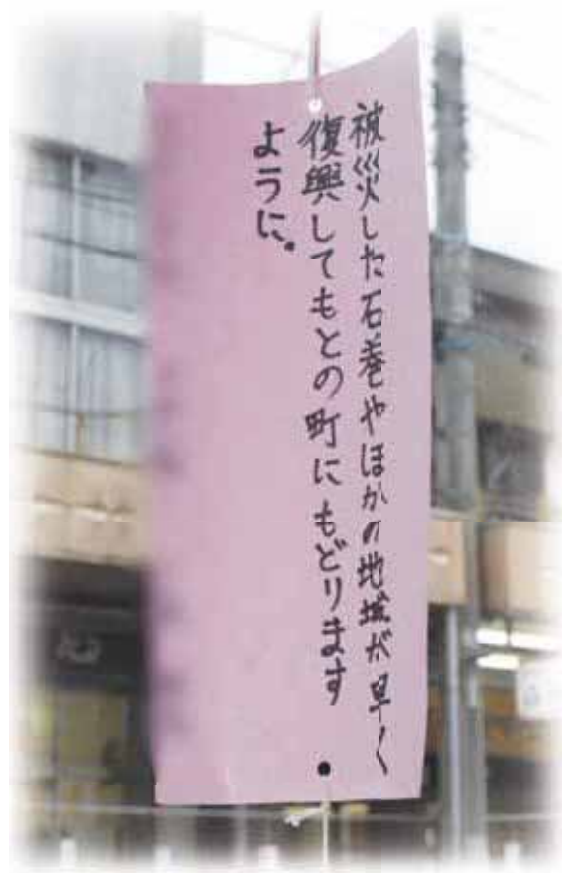 被災した石巻やほかの地域が早く
復興してもとの町にもどります
ように。